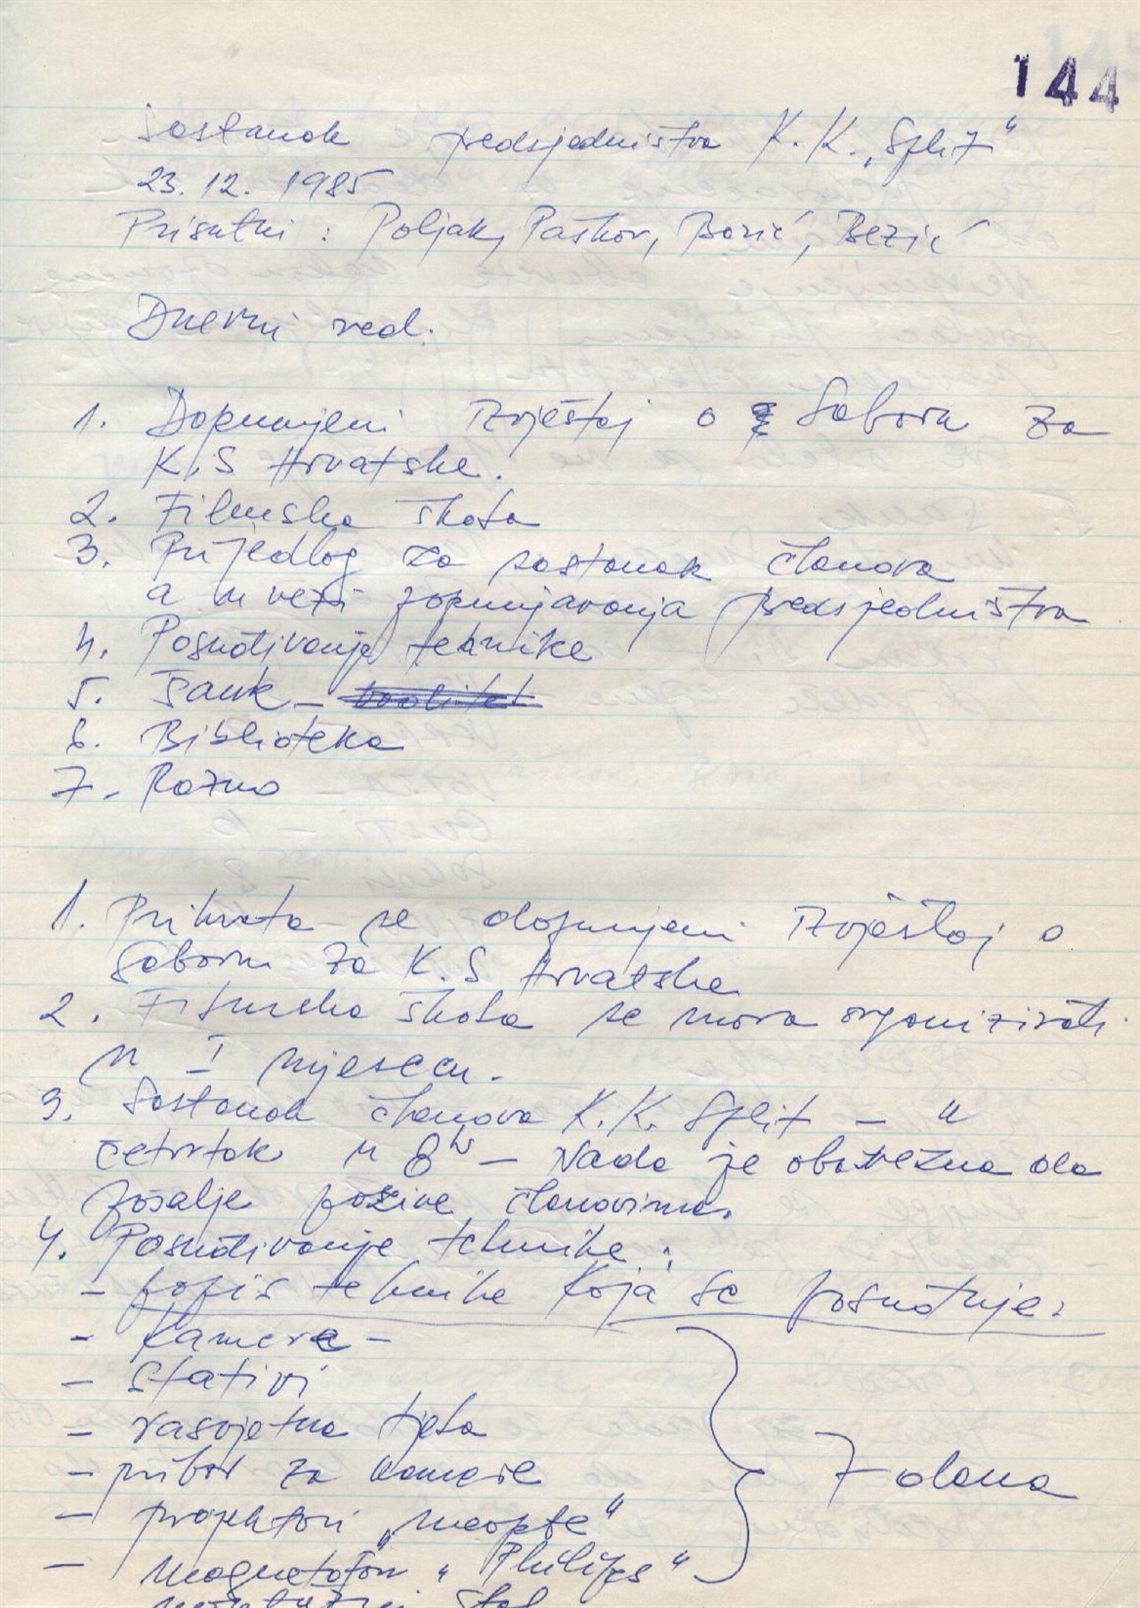 144
Sastanak predsjedništva K.K. „Split"
23.12.1985
Prisutni: Poljak, Paškov, Bozić, Bezić
Dnevni red:
1. Dopunjeni Izvještaj o Saboru za
K.S Hrvatske.
2. Filmska škola
3. Prijedlog za sastanak članova
a u vezi popunjavanja predsjedništva
4. Posuđivanje tehnike
5. Šank -
6. Biblioteka
7. Razno
1. Prihvata se dopunjeni Izvještaj o
Saboru za K.S Hrvatske
2. Filmska škola se mora organizirati
u I mjesecu.
3. Sastanak članova K.K. Split - u
četvrtak u 8h - Nada je obavezna da
pošalje pozive članovima.
4. Posuđivanje tehnike:
- popis tehnike koja se posuđuje:
- Kamere -
- Stativi
- rasvjetna tjela
- pribor za kamere
- projektori „meopte"
- magnetofon „Philips"
7 dana
montažni stol